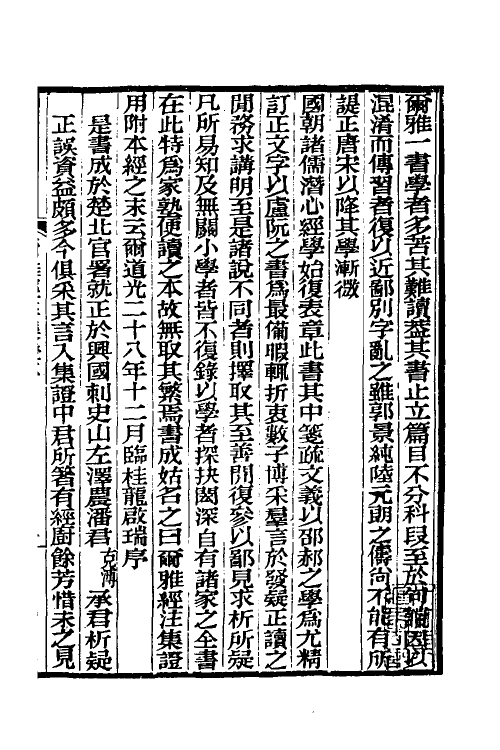 爾雅一書學者多苦其難讀葢其書止立篇目不分科段至於句讀因以
混淆而傳習者復以近鄙別字亂之雖郭景純陸元朗之儔尙不能有所
諟正唐宋以降其學漸微
國朝諸儒潛心經學始復表章此書其中箋疏文義以邵郝之學爲尤精
訂正文字以盧阮之書爲最備暇輒折衷數子博采羣言於發疑正讀之
閒務求講明至是諸說不同者則擇取其至善閒復參以鄙見求析所疑
凡所易知及無關小學者皆不復錄以學者探抉閎深自有諸家之全書
在此特爲家塾便讀之本故無取其繁焉書成姑名之曰爾雅經注集證
用附本經之末云爾道光二十八年十二月臨桂龍啟瑞序
是書成於楚北官署就正於興國刺史山左澤農潘君克溥承君析疑
正誤資益頗多今俱采其言入集證中君所箸有經廚餘芳惜未之見